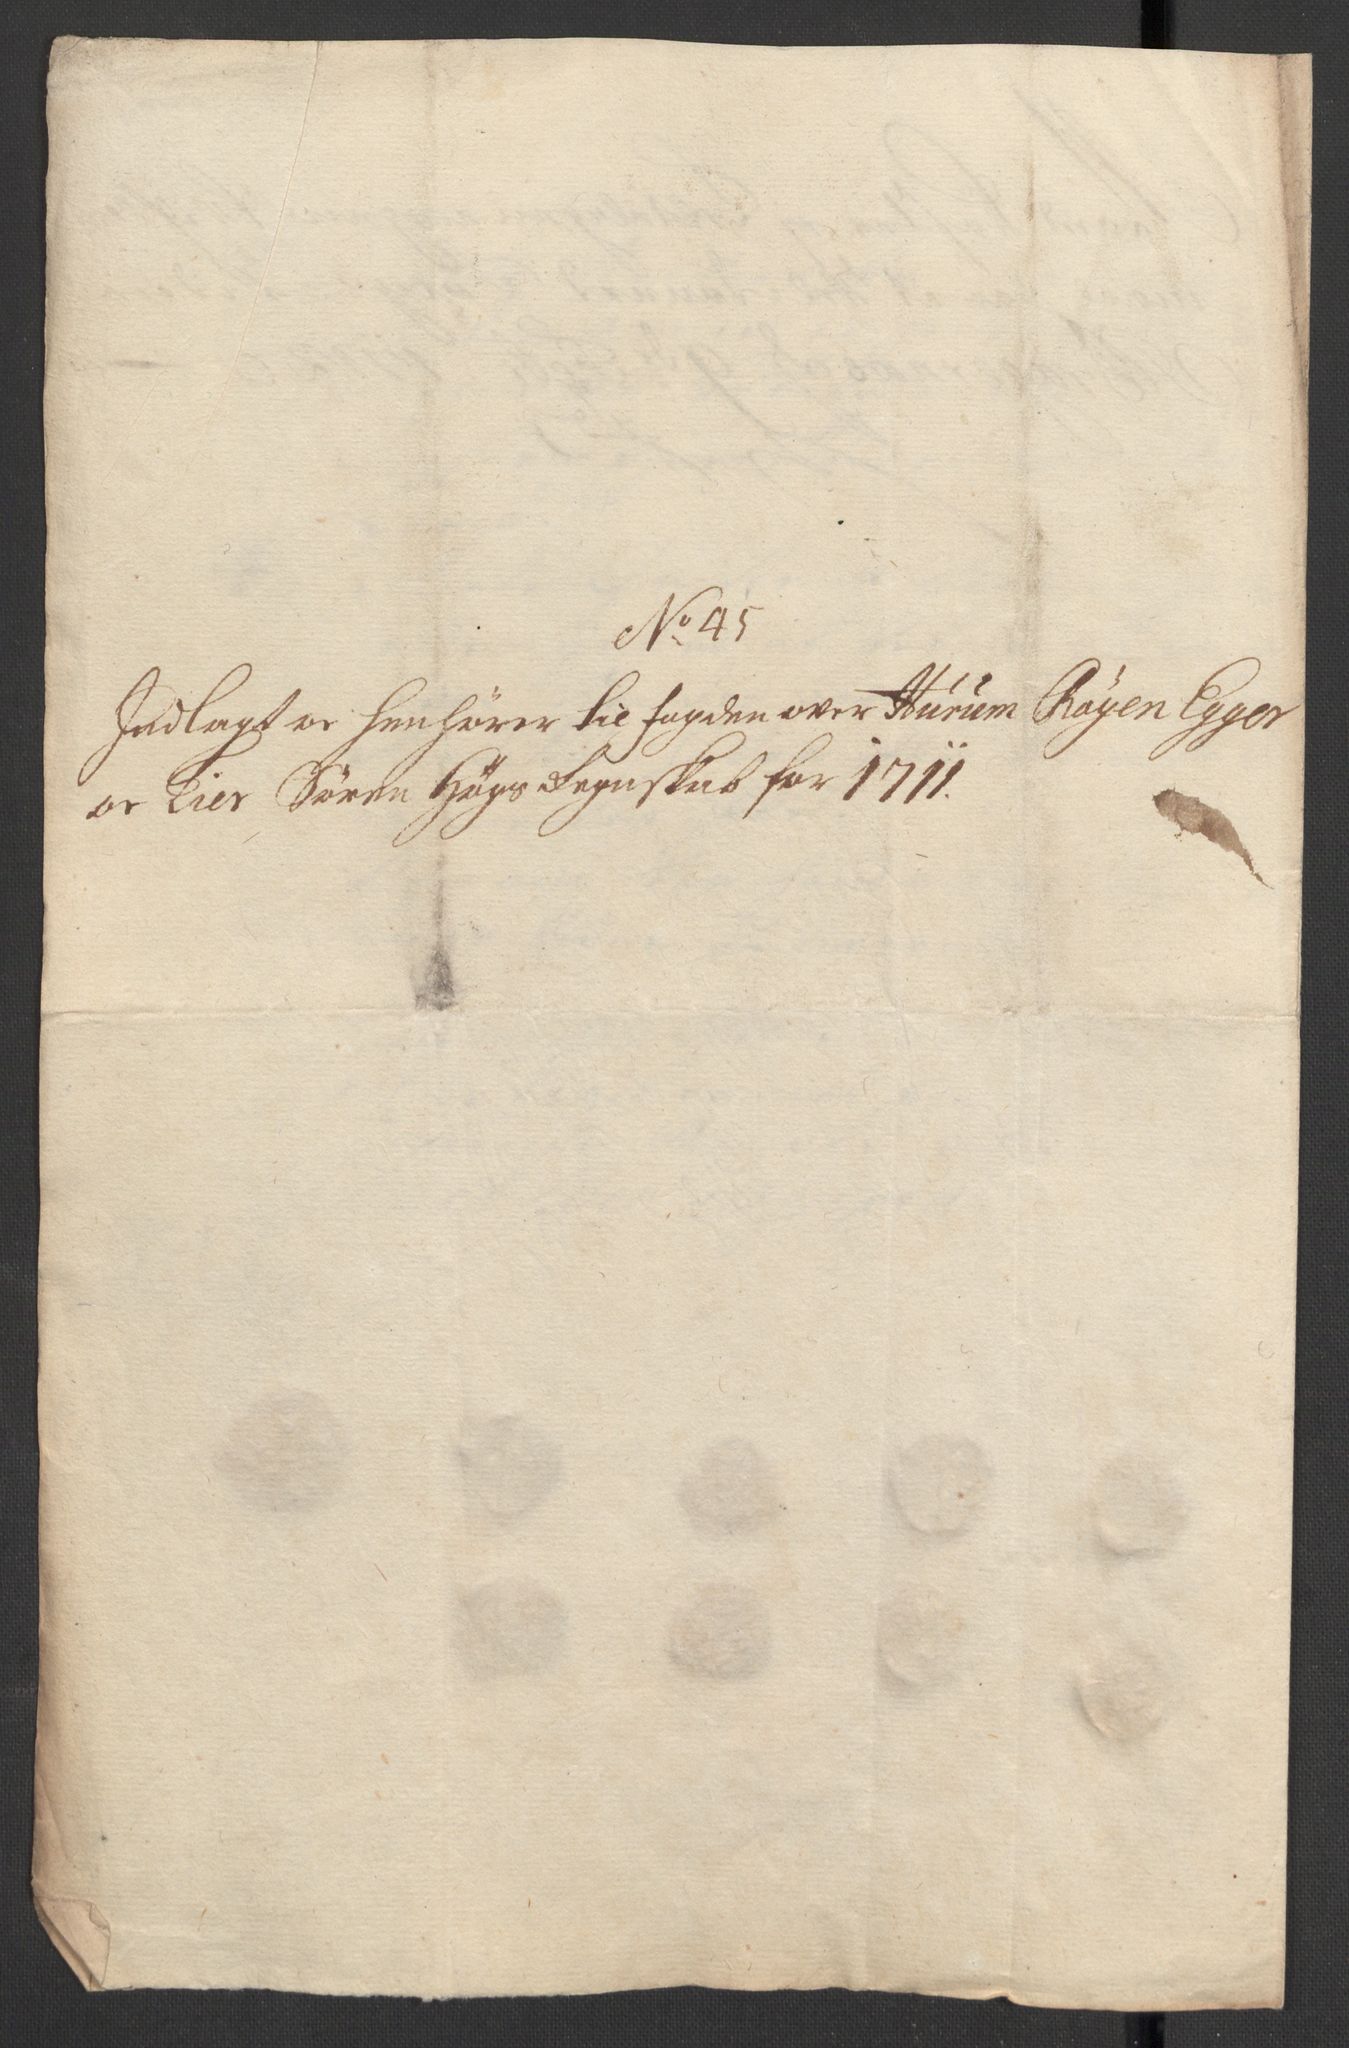 No 45
Indlagt oc henhører til fogden over Hurum Røyen Egger
oc Lier Søren Høgs Regnskab for 1711.